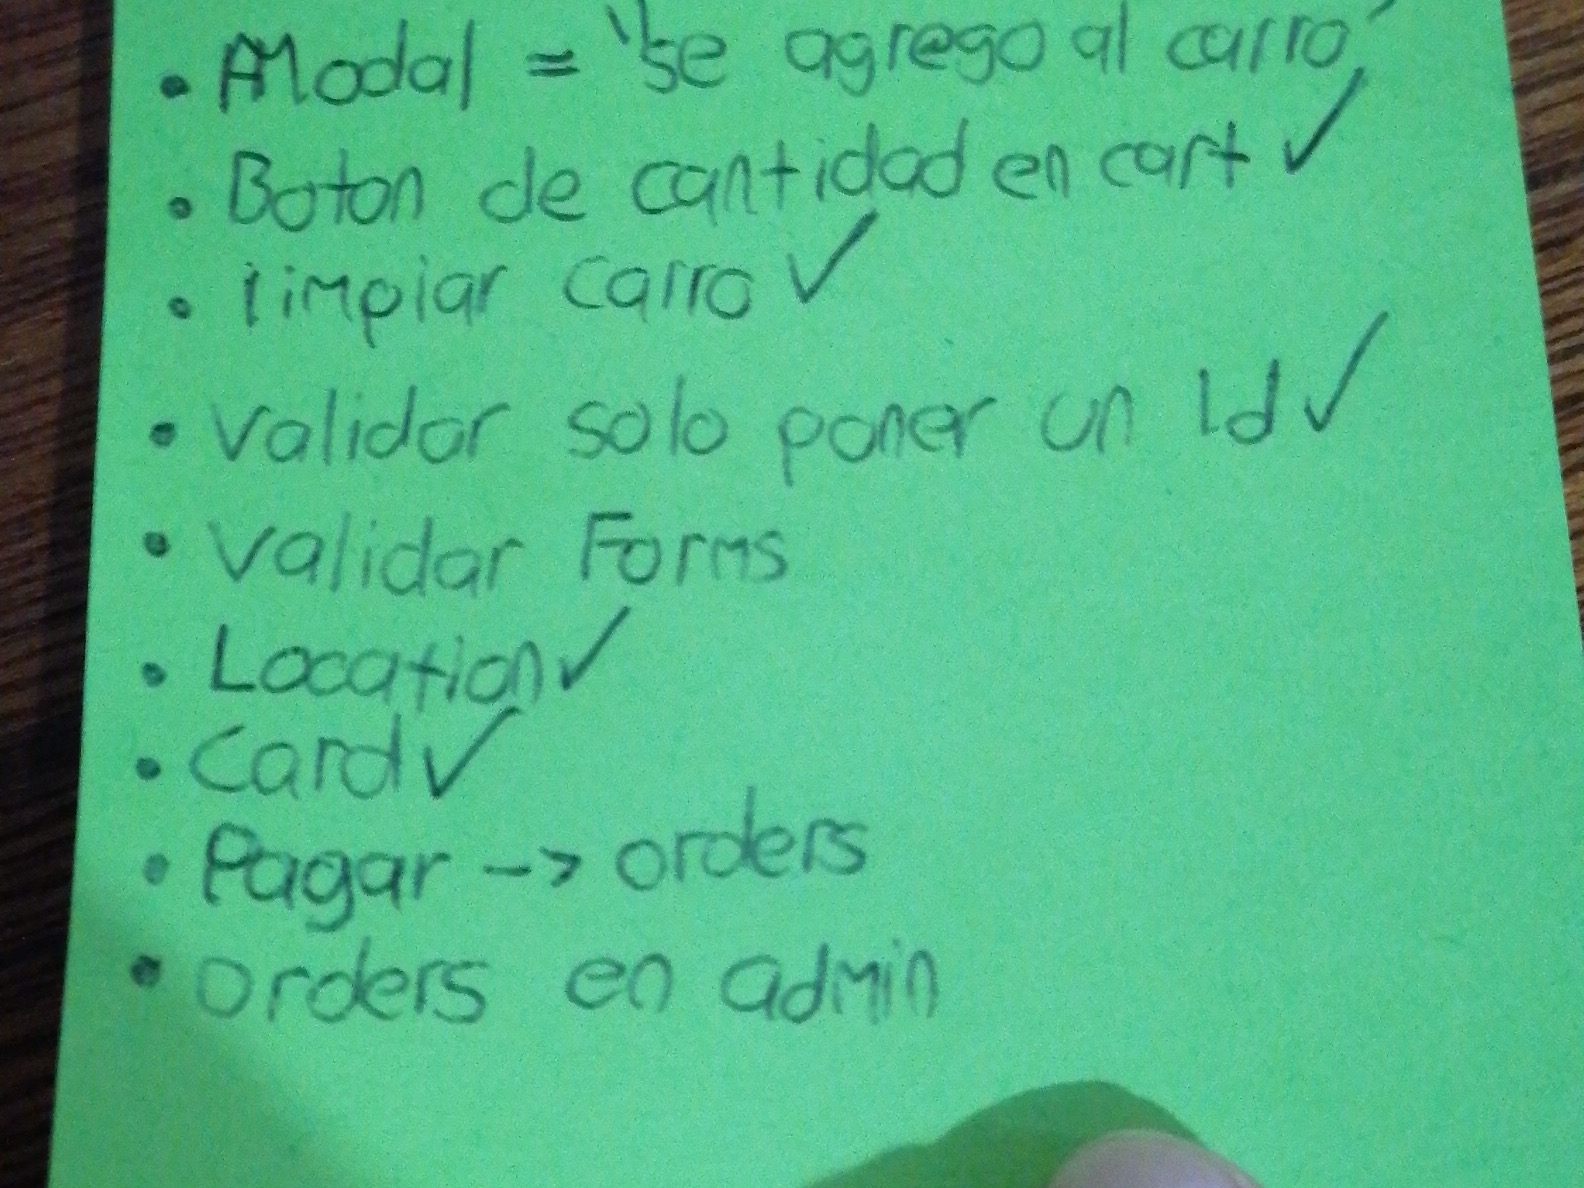 • Modal = "se agrego al carro"
• Boton de cantidad en cart ✓
• limpiar carro ✓
• validar solo poner un Id ✓
• validar Forms
• Location ✓
• Card ✓
• Pagar --> orders
• orders en admin